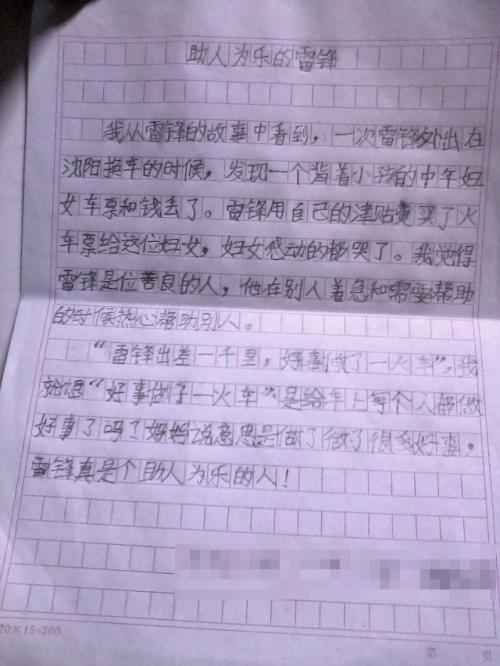 助人为乐的雷锋
我从雷锋的故事中看到，一次雷锋外出在
沈阳换车的时候，发现一个背着小孩的中年妇
女车票和钱丢了。雷锋用自己的津贴费买了火
车票给这位妇女，妇女感动的都哭了。我觉得
雷锋是位善良的人，他在别人着急和需要帮助
的时候热心帮助别人。
“雷锋出差一千里，好事做了一火车”，我
就想“好事做了一火车”是给车上每个人都做
好事了吗？妈妈说意思是做了做了很多好事，
雷锋真是个助人为乐的人！
20×15=300
第 页